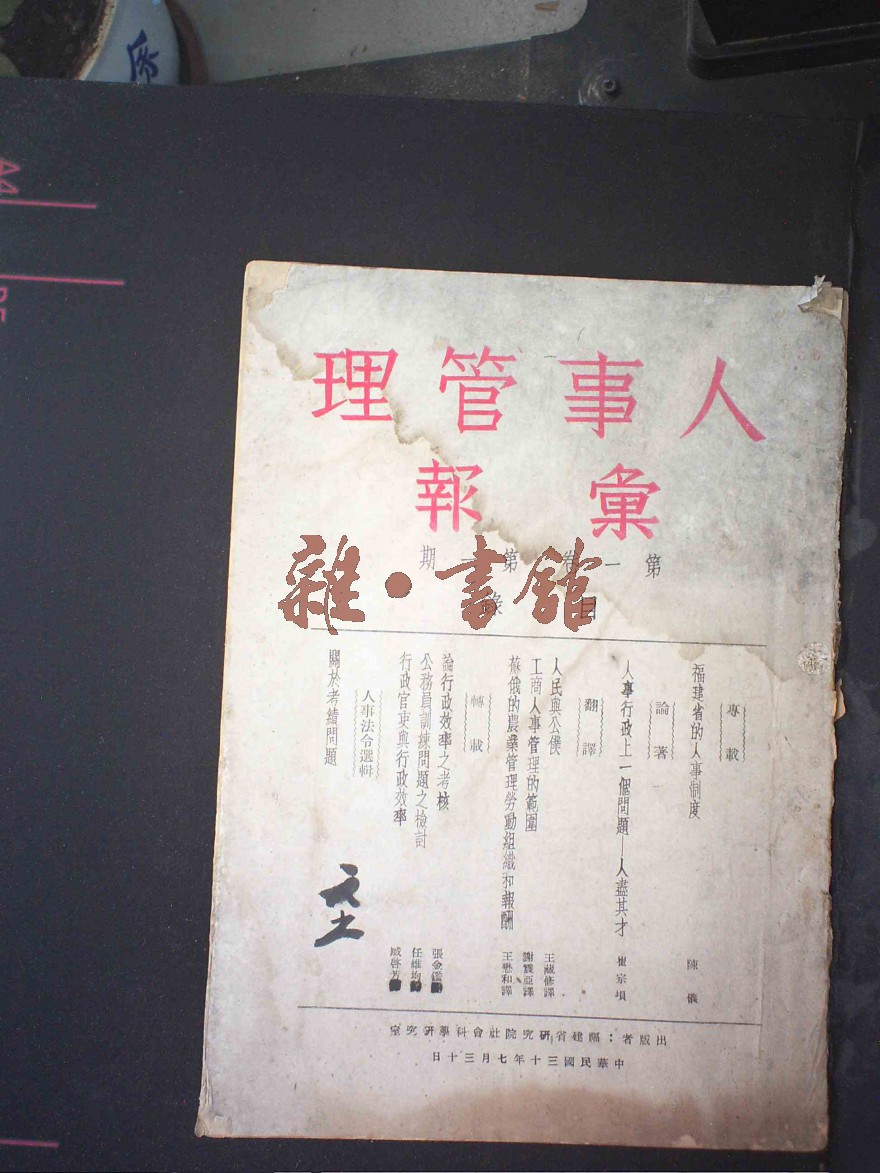 人事管理
彙報
第一卷第一期
目錄
雜·書館
專載
福建省的人事制度 陳儀
論著
人事行政上一個問題——人盡其才 崔宗塤
翻譯
人民與公僕 王葳修譯
工商人事管理的範圍 謝霞亞譯
蘇俄的農業管理勞動組織和報酬 王懋和譯
轉載
論行政效率之考核 張金鑑
公務員訓練問題之檢討 任維均
行政官吏與行政效率 臧啓芳
人事法令選輯
關於考績問題
出版者：福建省研究院社會科學研究室
中華民國三十年七月三十日
A4